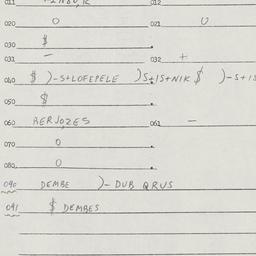 011 012
020 0 021 0
030 $
031 — 032 +
040 $ )-S+LOFEPELE )S+IS+NIK $ )-S+IS
050 $
060 HERJOZES 061 —
070 0
080 0
090 DEMBE )- DUB QRUS
091 $ DEMBES